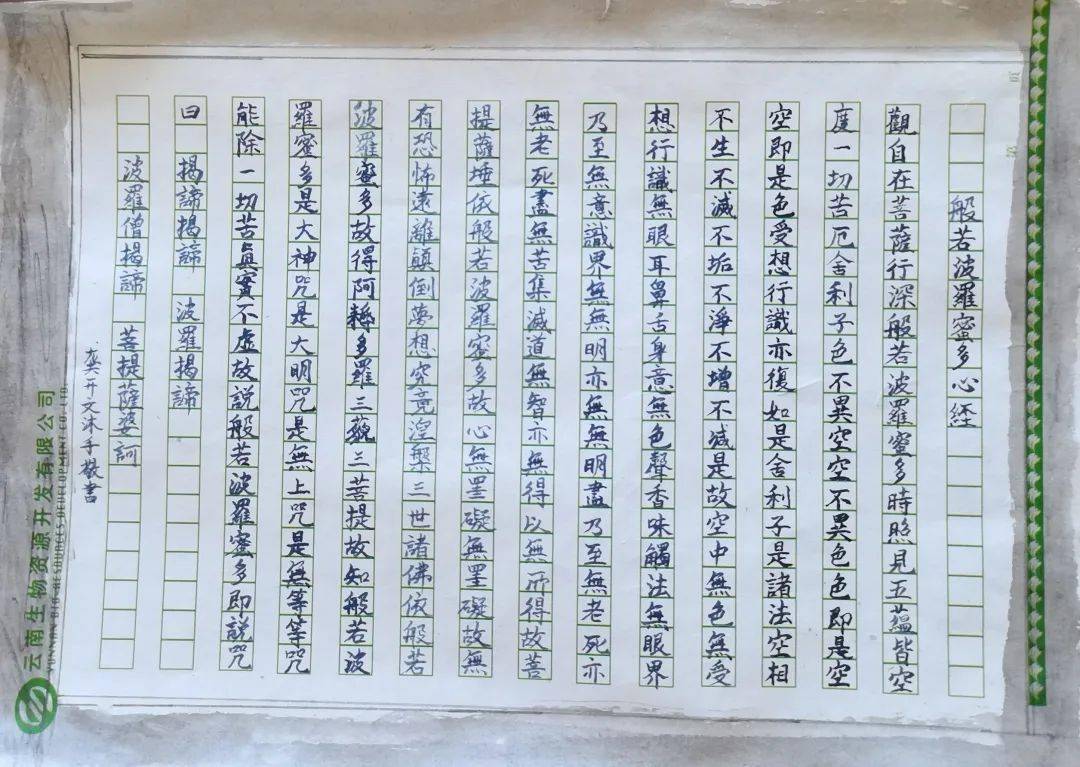 般若波羅蜜多心経
觀自在菩薩行深般若波羅蜜多時照見五蘊皆空
度一切苦厄舍利子色不異空空不異色色即是空
空即是色受想行識亦復如是舍利子是諸法空相
不生不滅不垢不淨不增不減是故空中無色無受
想行識無眼耳鼻舌身意無色聲香味觸法無眼界
乃至無意識界無無明亦無無明盡乃至無老死亦
無老死盡無苦集滅道無智亦無得以無所得故菩
提薩埵依般若波羅蜜多故心無罣礙無罣礙故無
有恐怖遠離顛倒夢想究竟涅槃三世諸佛依般若
波羅蜜多故得阿耨多羅三藐三菩提故知般若波
羅蜜多是大神咒是大明咒是無上咒是無等等咒
能除一切苦真實不虛故說般若波羅蜜多即說咒
曰 揭諦揭諦 波羅揭諦
波羅僧揭諦 菩提薩婆訶
龚开文沐手敬書
云南生物资源开发有限公司
YUNNAN BIO-RESOURCES DEVELOPMENT CO.,LTD.